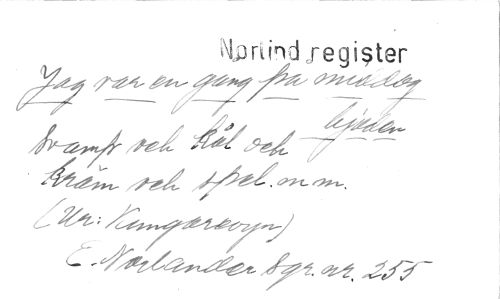 Norlind register
Jag var en gang på middag
bjuden
Svamp och kål och
kräm och spel. m.m.
(Ur: Kungarevyn)
E. Norlander Sgr. nr. 255